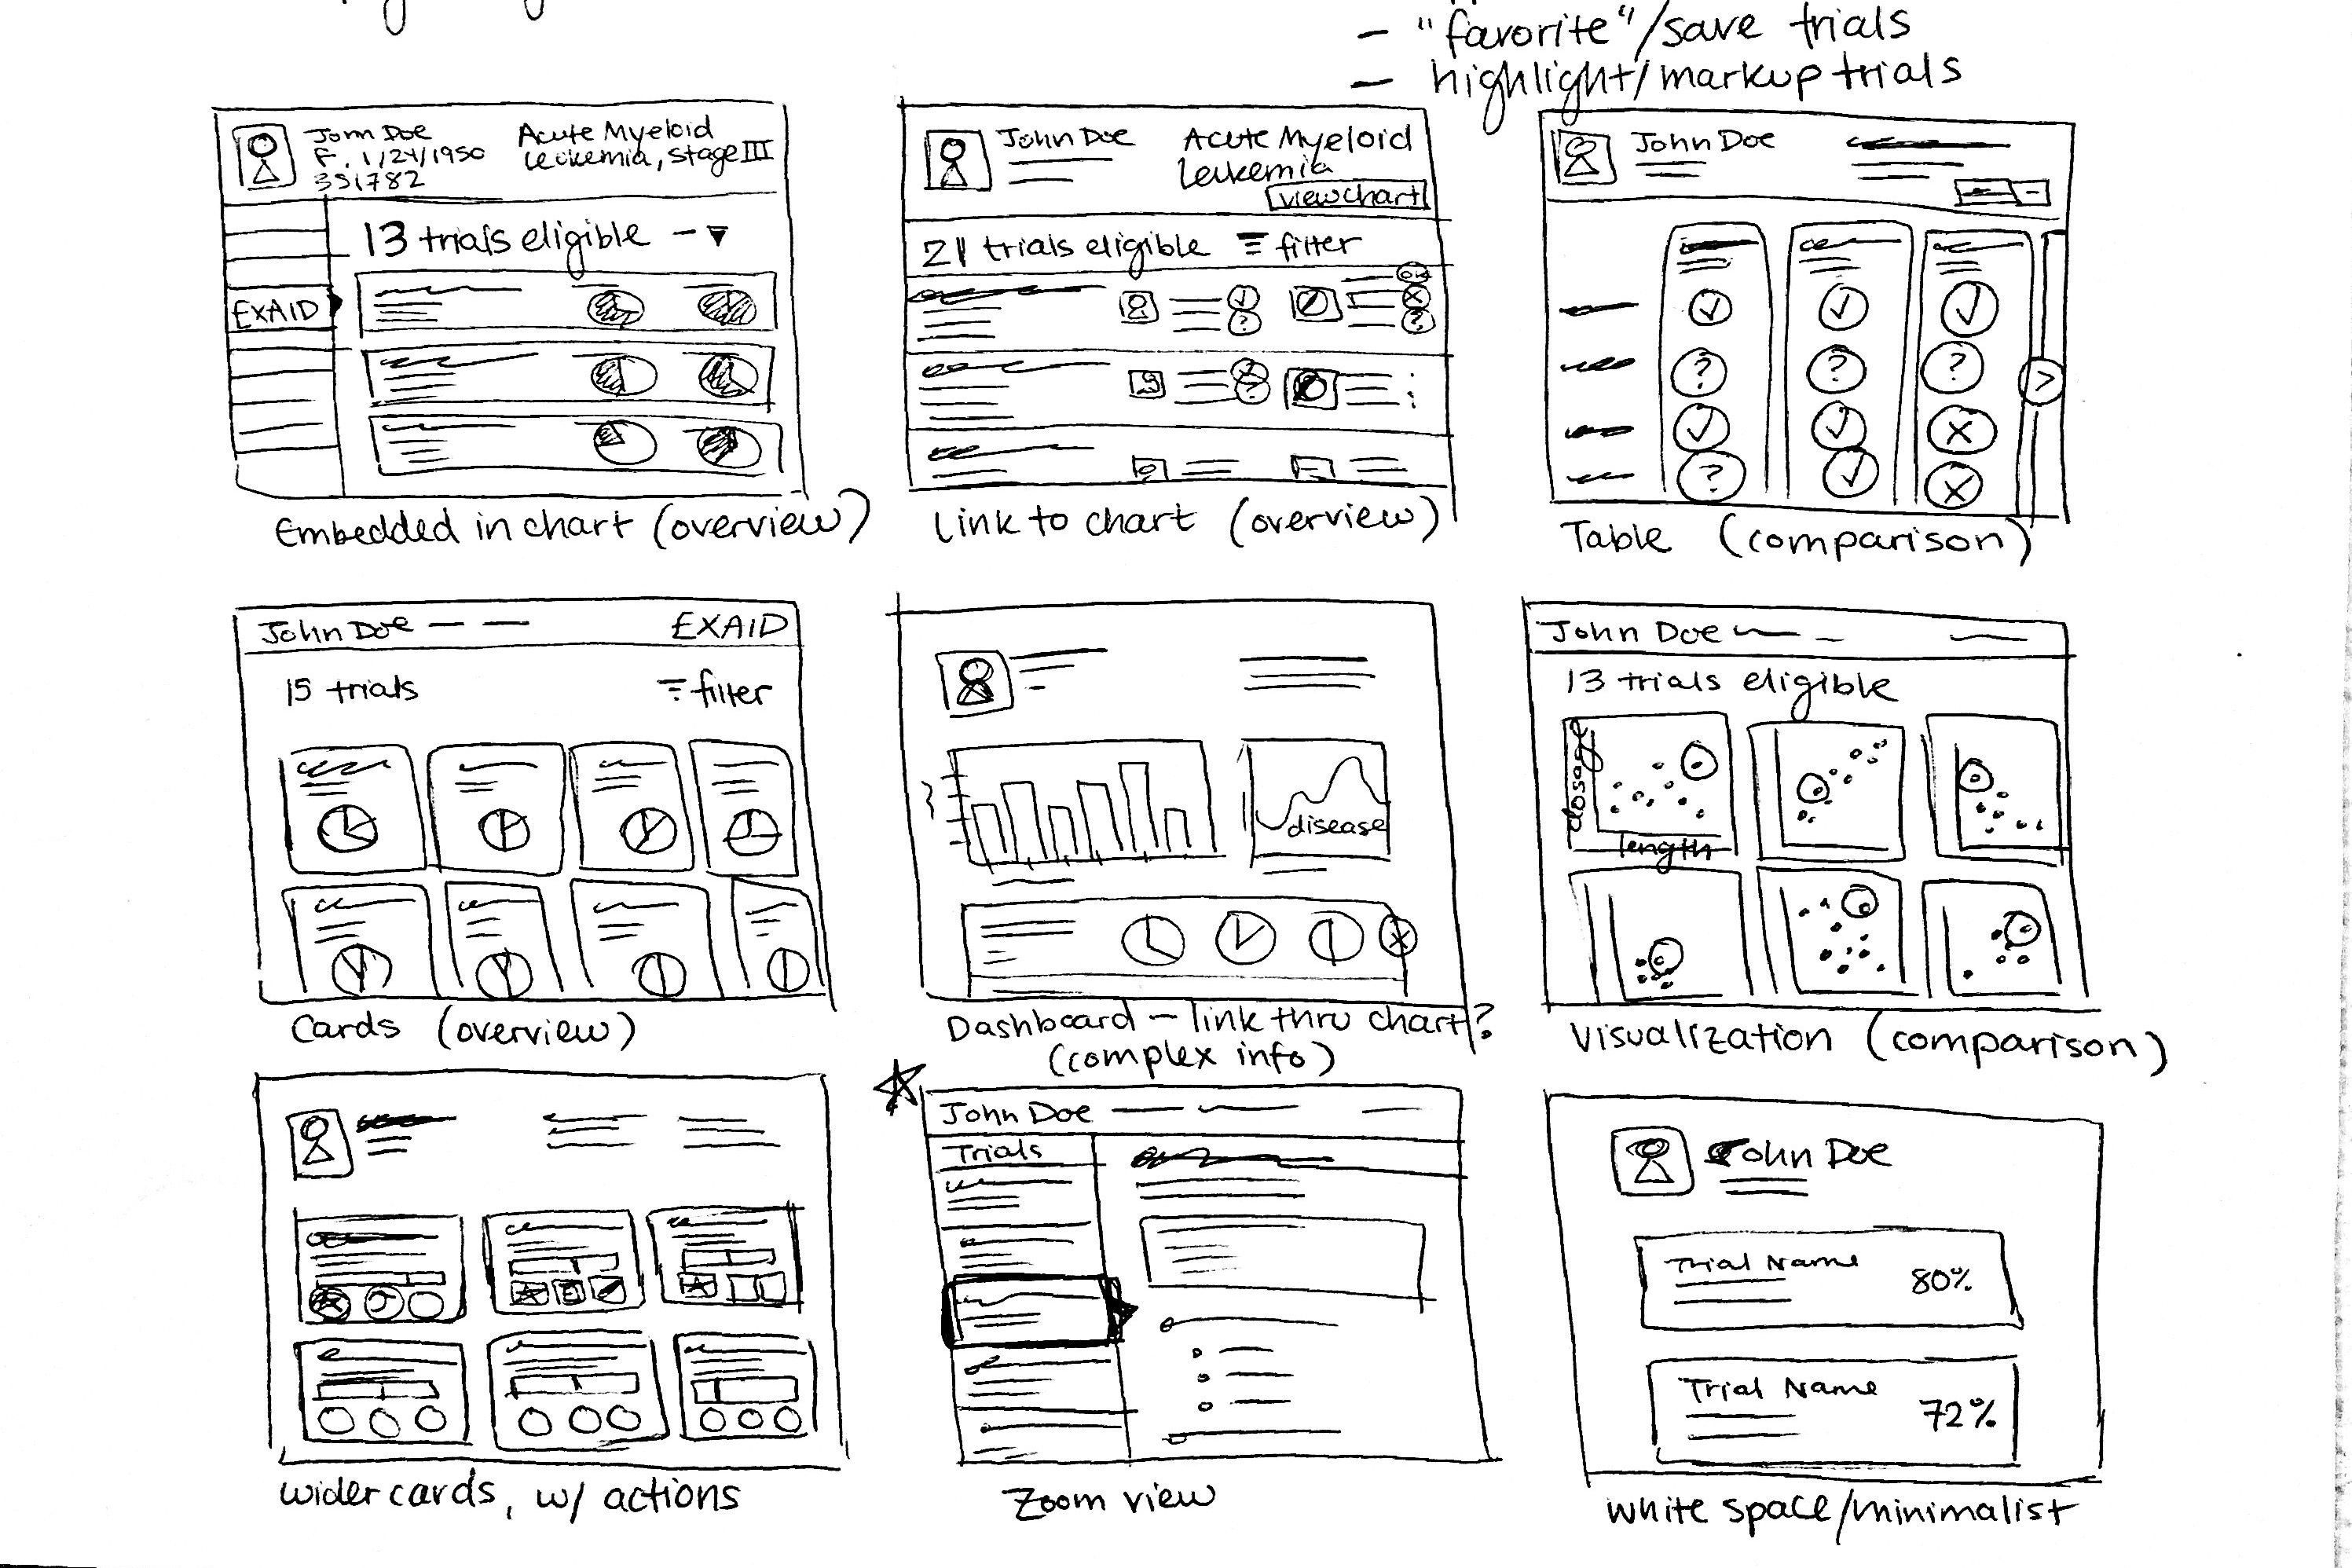 - "favorite"/save trials
- highlight/markup trials
John Doe
F, 1/24/1950
351782
Acute Myeloid
Leukemia, Stage III
13 trials eligible
EXAID
Embedded in chart (overview)
John Doe
Acute Myeloid
Leukemia
view chart
21 trials eligible
filter
Link to chart (overview)
John Doe
Table (comparison)
John Doe
EXAID
15 trials
filter
Cards (overview)
disease
Dashboard - link thru chart?
(complex info)
John Doe
13 trials eligible
dosage
length
Visualization (comparison)
wider cards, w/ actions
John Doe
Trials
Zoom view
John Doe
Trial Name
80%
Trial Name
72%
white space/minimalist